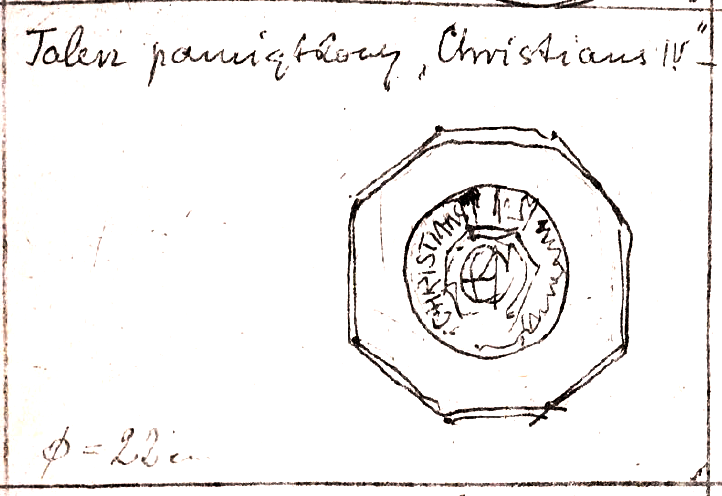 Talerz pamiątkowy „Christians IV"
CHRISTIANS
φ = 22 cm